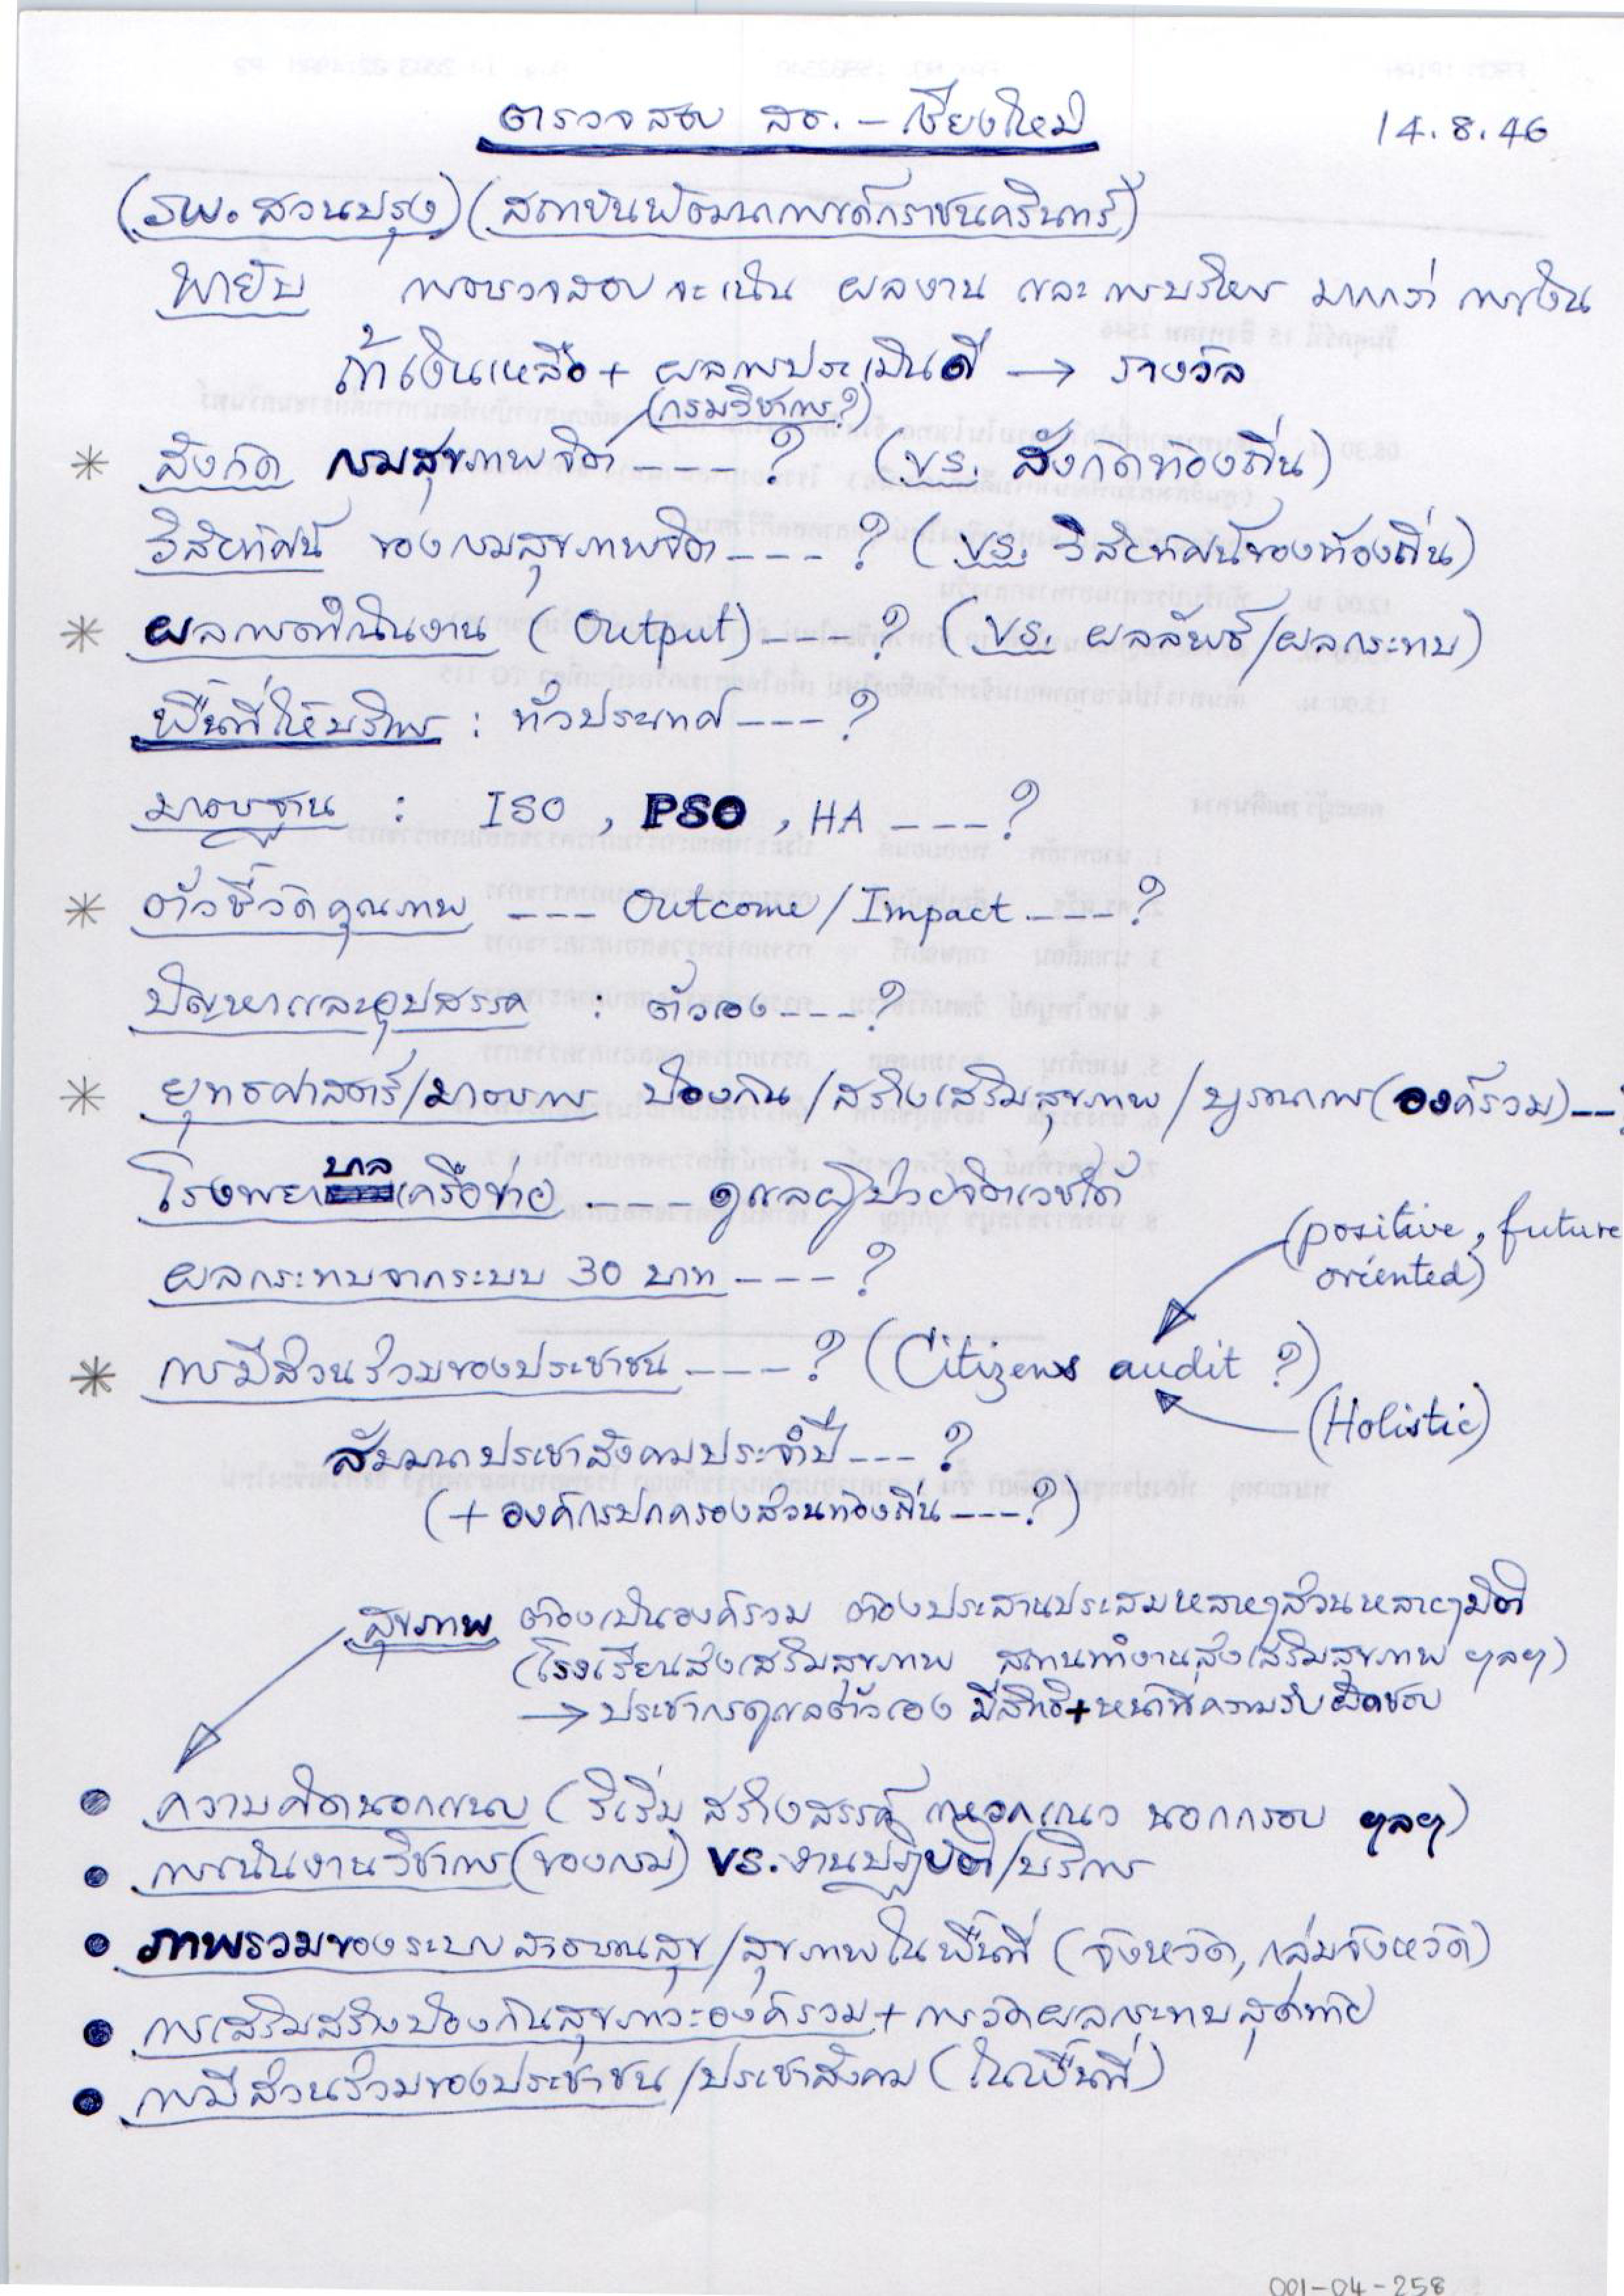 ตรวจสอบ สธ. – เชียงใหม่
14.8.46
(รพ. สวนปรุง) (สถาบันพัฒนาการเด็กราชนครินทร์)
พายัพ การตรวจสอบจะเน้น ผลงาน และ การบริหาร มากกว่า การเงิน
ถ้าเงินเหลือ + ผลการประเมินดี → รางวัล
(กรมวิชาการ?)
* สังกัด กรมสุขภาพจิต ---- ? (vs. สังกัดท้องถิ่น)
วิสัยทัศน์ ของกรมสุขภาพจิต ---- ? (vs. วิสัยทัศน์ของท้องถิ่น)
* ผลการดำเนินงาน (Output) ---- ? (vs. ผลลัพธ์/ผลกระทบ)
พื้นที่ให้บริการ : ทั่วประเทศ ---- ?
มาตรฐาน : ISO , PSO , HA --- ?
* ตัวชี้วัดคุณภาพ --- Outcome/Impact ---- ?
ปัญหาและอุปสรรค : ตัวเอง ---- ?
* ยุทธศาสตร์/มาตรการ ป้องกัน/สร้างเสริมสุขภาพ/บูรณาการ(องค์รวม) -- ?
โรงพยาบาลเครือข่าย ---- ดูแลผู้ป่วยจิตเวชได้
(positive, future
oriented)
ผลกระทบจากระบบ 30 บาท ---- ?
* การมีส่วนร่วมของประชาชน ---- ? (Citizens audit ?)
(Holistic)
สัมมนาประชาสังคมประจำปี --- ?
(+ องค์กรปกครองส่วนท้องถิ่น --- ?)
สุขภาพ ต้องเป็นองค์รวม ต้องประสานประสมหลายๆส่วนหลายๆมิติ
(โรงเรียนส่งเสริมสุขภาพ สถานทำงานส่งเสริมสุขภาพ ฯลฯ)
→ ประชากรดูแลตัวเอง มีสิทธิ+หน้าที่ความรับผิดชอบ
● ความคิดนอกแบบ (ริเริ่ม สร้างสรรค์ แหวกแนว นอกกรอบ ฯลฯ)
● การเน้นงานวิชาการ (ของกรม) vs. งานปฏิบัติ/บริการ
● ภาพรวมของระบบสาธารณสุข/สุขภาพในพื้นที่ (จังหวัด, กลุ่มจังหวัด)
● การเสริมสร้างป้องกันสุขภาวะองค์รวม + การวัดผลกระทบสุดท้าย
● การมีส่วนร่วมของประชาชน/ประชาสังคม (ในพื้นที่)
001-04-258